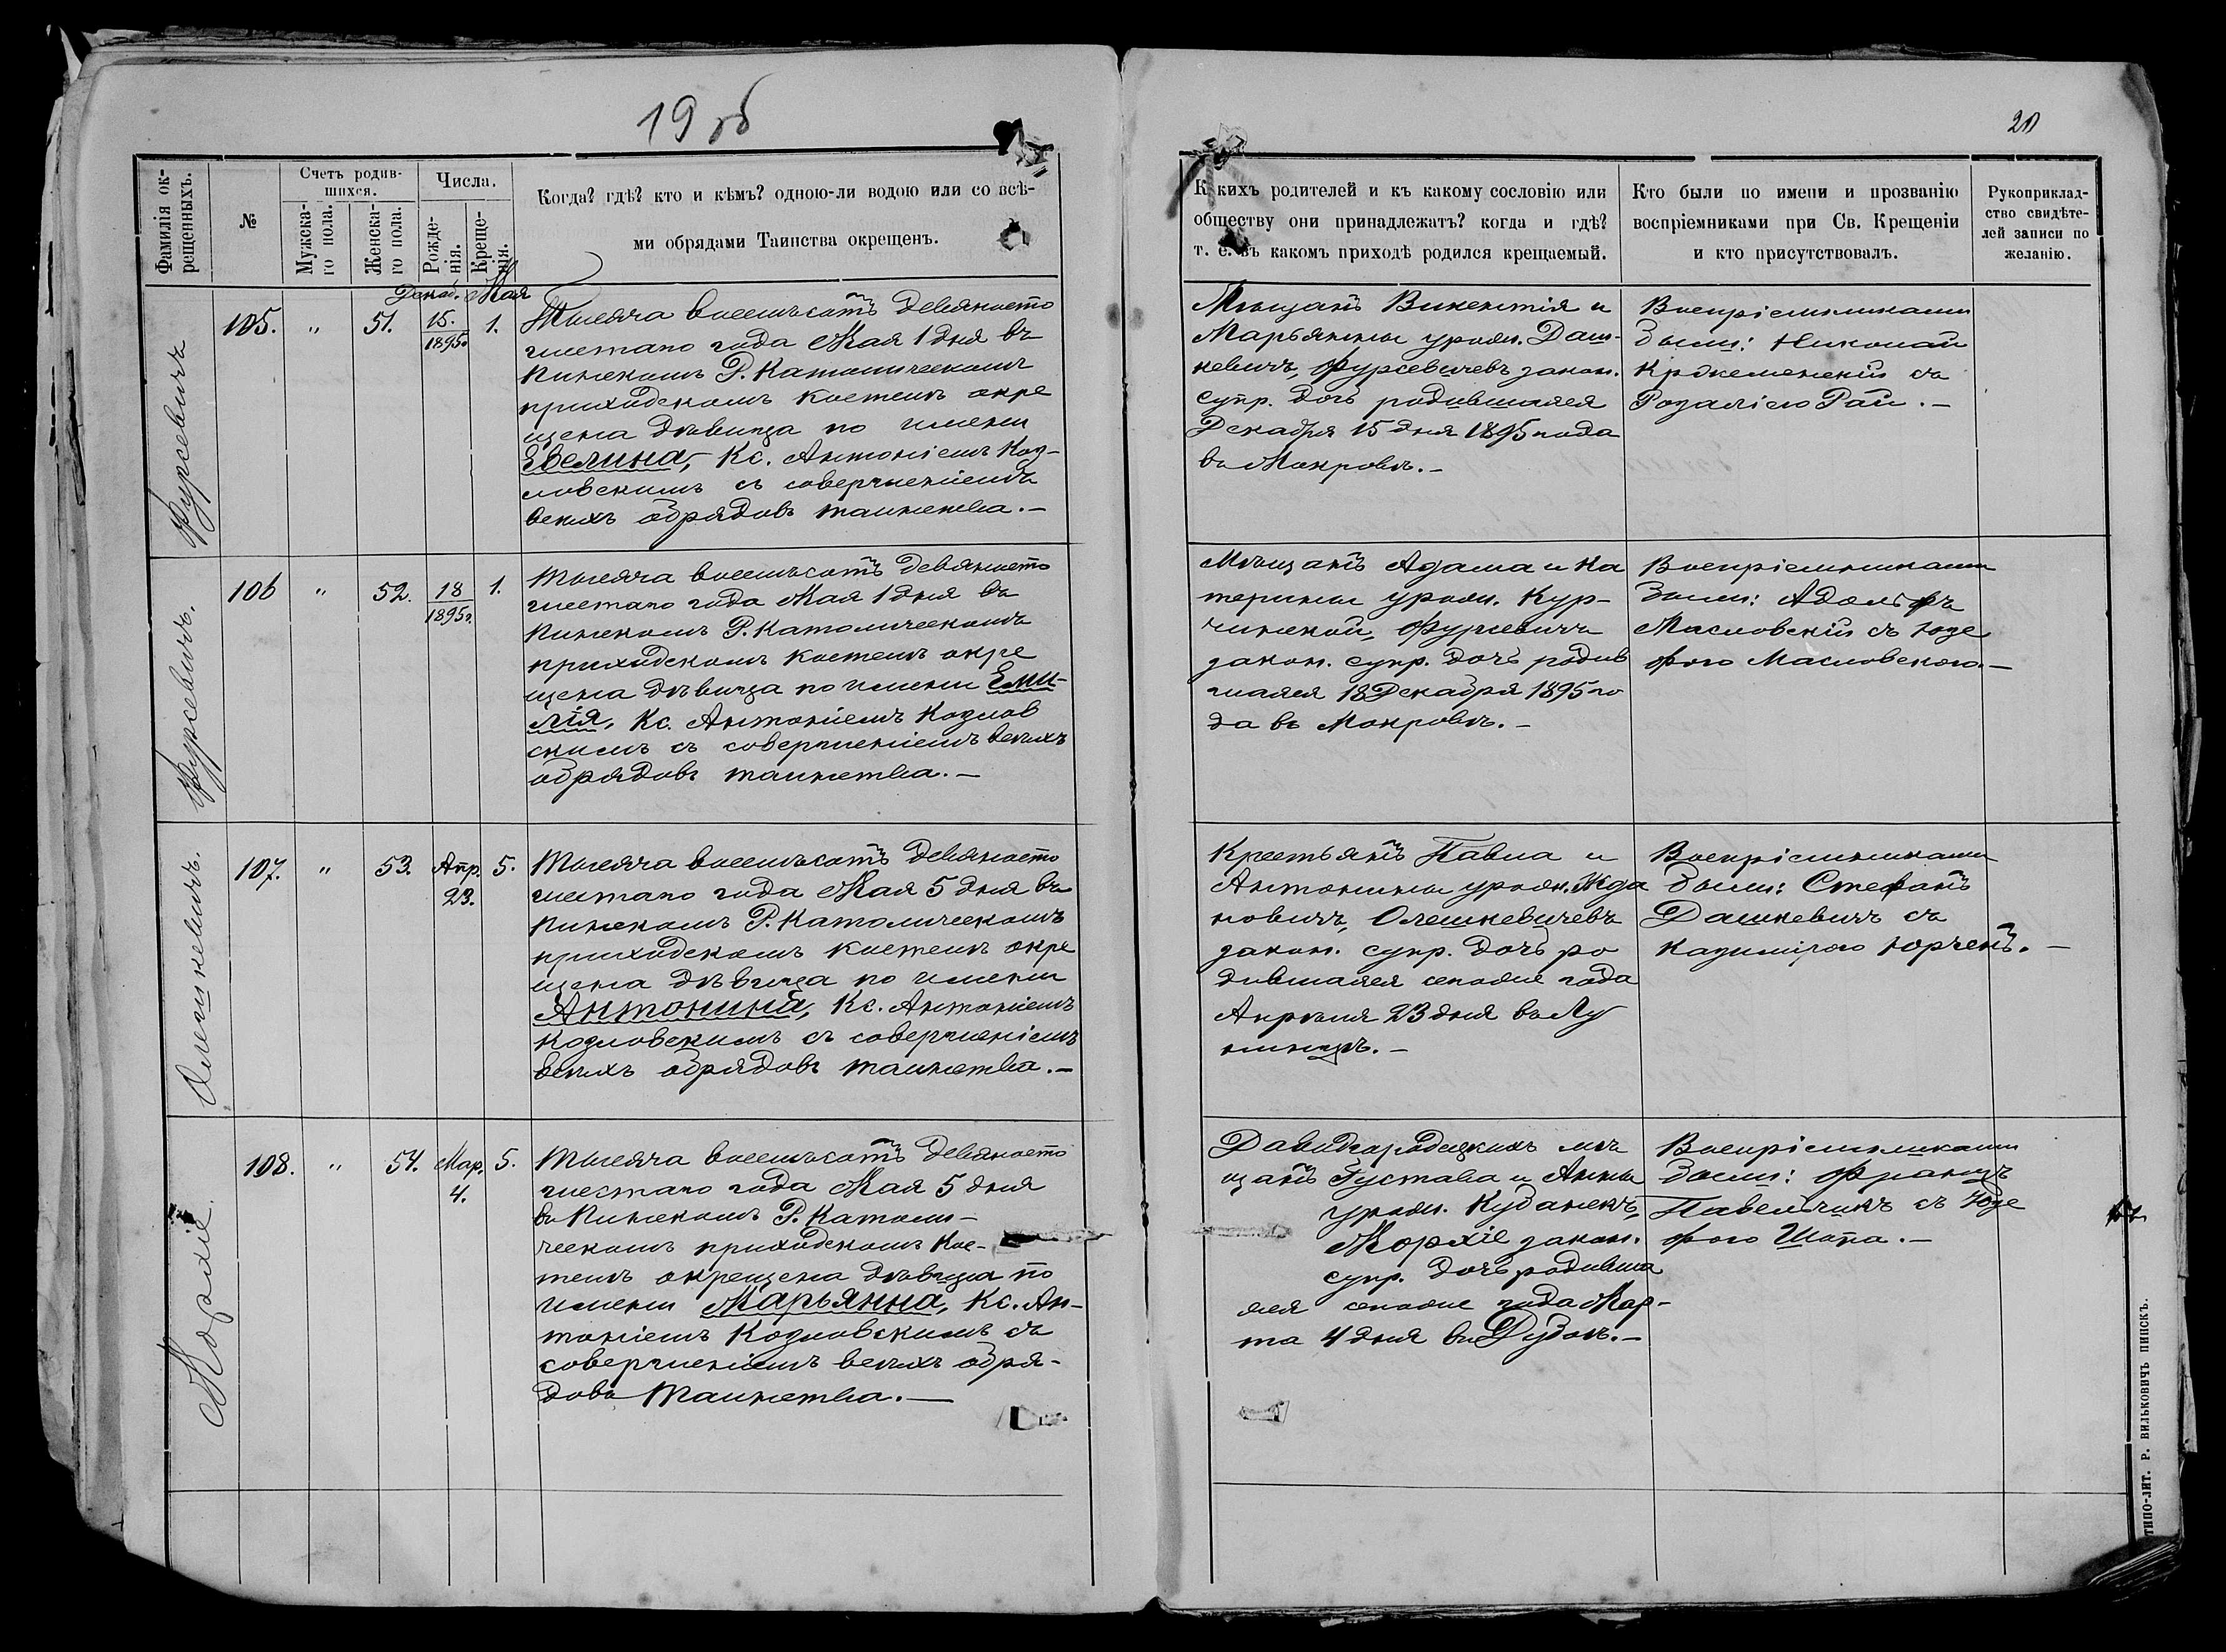 19 об
20
Фамилія ок-
рещенныхъ.
№
Счетъ родив-
шихся.
Мужска-
го пола.
Женска-
го пола.
Числа.
Рожде-
нія.
Креще-
нія.
Когда? гдѣ? кто и кѣмъ? одною-ли водою или со всѣ-
ми обрядами Таинства окрещенъ.
Какихъ родителей и къ какому сословію или
обществу они принадлежатъ? когда и гдѣ?
т. е. въ какомъ приходѣ родился крещаемый.
Кто были по имени и прозванію
воспріемниками при Св. Крещеніи
и кто присутствовалъ.
Рукоприклад-
ство свидѣте-
лей записи по
желанію.
Фурсевичъ
105.
"
51.
Декаб.
15.
1895г.
Мая
1.
Тысяча восемьсотъ девяносто
шестаго года Мая 1 дня въ
Пинскомъ Р. Католическомъ
приходскомъ костелѣ окре
щена дѣвица по имени
Евелина, Кс. Антоніемъ Коз-
ловскимъ съ совершеніемъ
всѣхъ обрядовъ таинства.–
Мѣщанъ Викентія и
Марьянны урожд. Даш-
кевичъ, Фурсевичевъ закон.
супр. дочь родившаяся
Декабря 15 дня 1895 года
въ Мокровѣ.–
Воспріемниками
были: Николай
съ
Розаліею Рай.–
Фурсевичъ.
106
"
52.
18
1895г.
1.
Тысяча восемьсотъ девяносто
шестаго года Мая 1 дня въ
Пинскомъ Р. Католическомъ
приходскомъ костелѣ окре
щена дѣвица по имени Еми-
лія, Кс. Антоніемъ Козлов
скимъ съ совершеніемъ всѣхъ
обрядовъ таинства.–
Мѣщанъ Адама и Ка
терины урожд. Кур-
чинской, Фурсевичи
закон. супр. дочь родив
шаяся 18 Декабря 1895 го
да въ Мокровѣ.–
Воспріемниками
были: Адольфъ
Масловскій съ Юзе
фою Масловскою.–
Олешкевичъ.
107.
"
53.
Апр.
23.
5.
Тысяча восемьсотъ девяносто
шестаго года Мая 5 дня въ
Пинскомъ Р. Католическомъ
приходскомъ костелѣ окре
щена дѣвица по имени
Антонина, Кс. Антоніемъ
Козловскимъ съ совершеніемъ
всѣхъ обрядовъ таинства.–
Крестьянъ Павла и
Антонины урожд. Жда
новичъ, Олешкевичевъ
закон. супр. дочь ро
дившаяся сего же года
Апрѣля 23 дня въ Лу
нинцѣ.–
Воспріемниками
были: Стефанъ
Дашкевичъ съ
Казимірою Юрчень.–
Морхіе
108.
"
54.
Мар.
4.
5.
Тысяча восемьсотъ девяносто
шестаго года Мая 5 дня
въ Пинскомъ Р. Католи-
ческомъ приходскомъ кос-
телѣ окрещена дѣвица по
имени Марьянна, Кс. Ан-
тоніемъ Козловскимъ съ
совершеніемъ всѣхъ обря-
довъ таинства.–
Давидгородецкихъ мѣ
щанъ Густава и Анны
урожд. Кубанекъ,
Морхіе закон.
супр. дочь родивша
яся сего же года Мар-
та 4 дня въ
Воспріемниками
были: Францъ
Павельчикъ съ Юзе
фою Шопа.–
ТИПО-ЛИТ. Р. ВИЛЬКОВИЧЪ ПИНСКЪ.